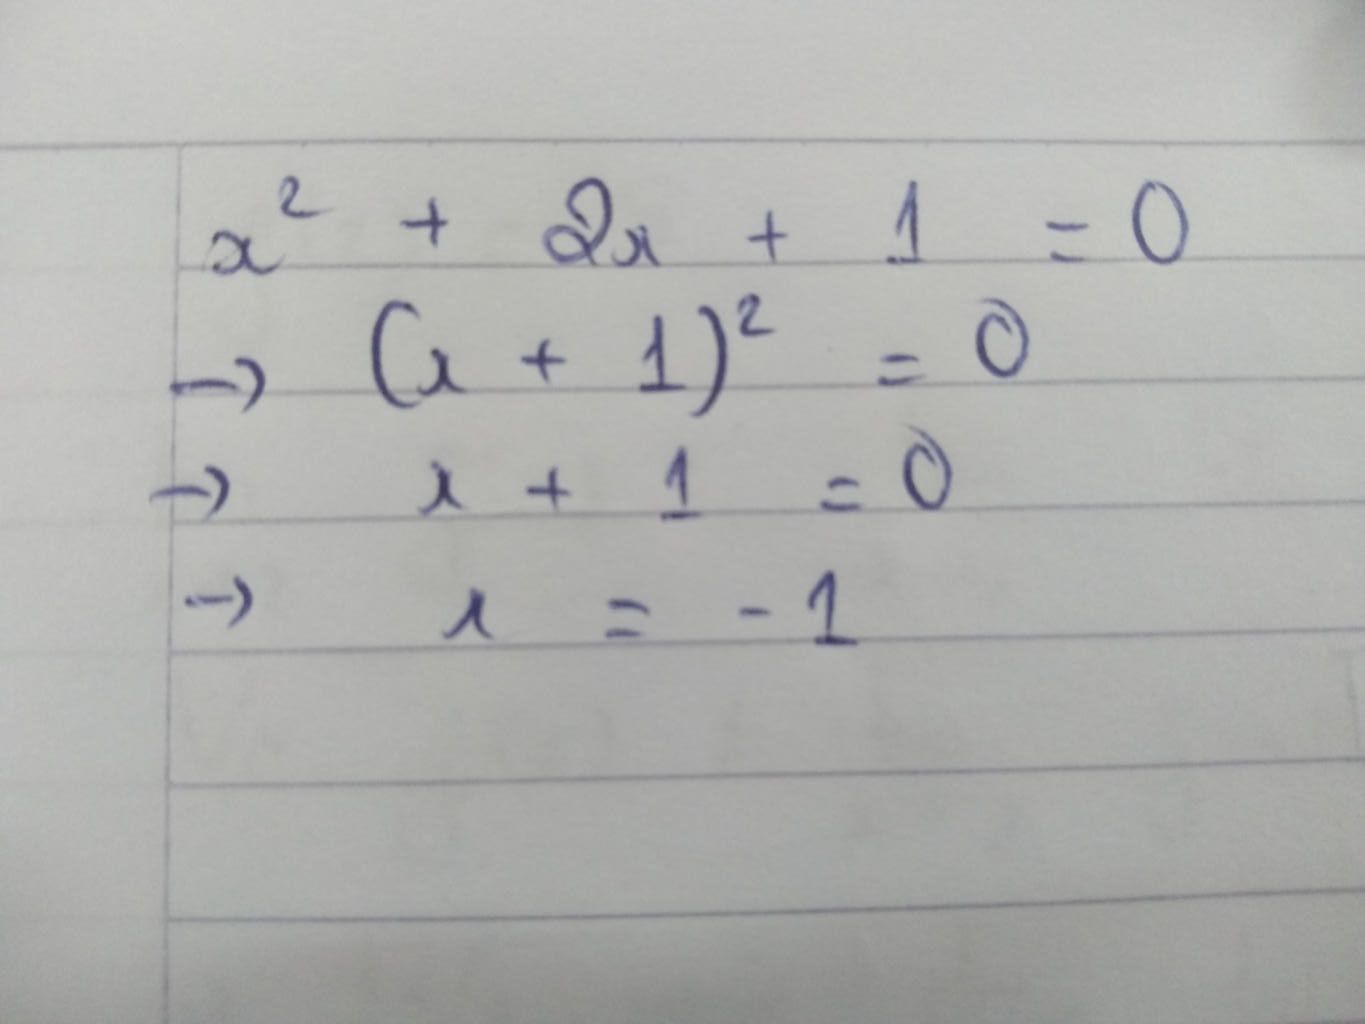 x² + 2x + 1 = 0
→ (x + 1)² = 0
→ x + 1 = 0
→ x = -1